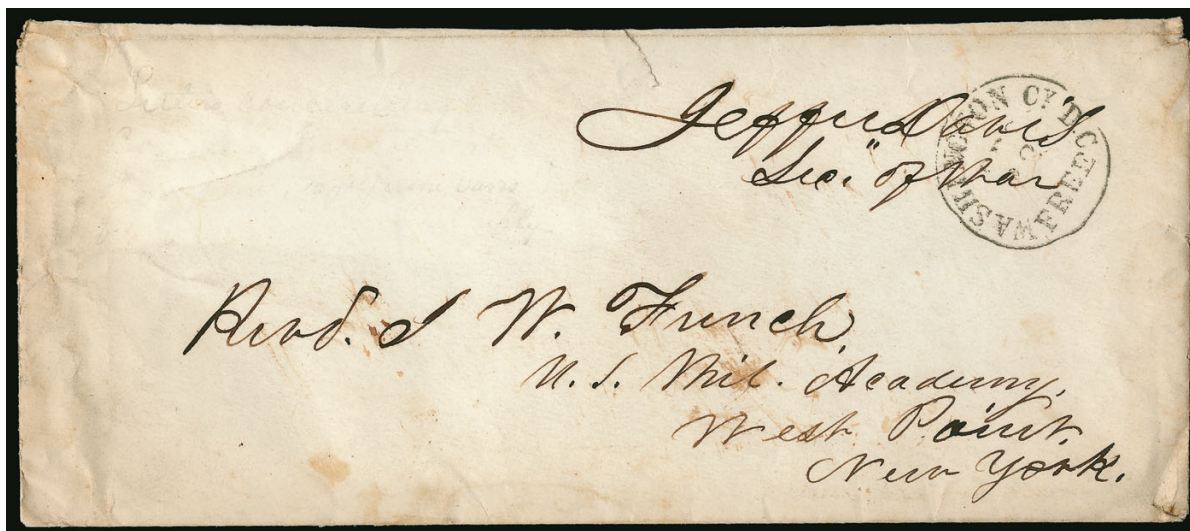 Jeffer Davis
Sec. of War
WASHINGTON CY. D.C.
FREE
Revd. J W. French,
U. S. Mil. Academy,
West Point,
New York.